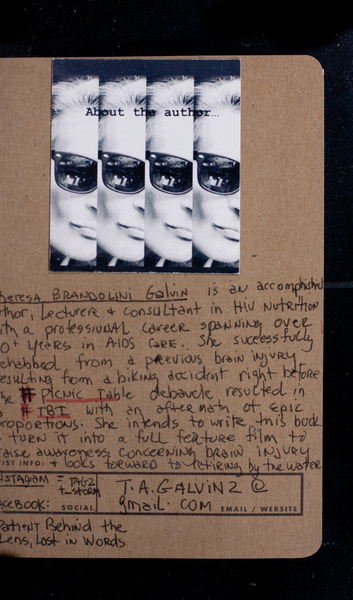 About the author...
heresa BRANDOLINI Galvin is an accomplished
thor, Lecturer & consultant in HIV NUTRITION
ith a professional career spanning over
0+ years in AIDS CARE. She successfully
ehabbed from a previous brain injury
esulting from a biking accident right before
he # PICNIC Table debaucle resulted in
a # TBI with an aftermath of Epic
roportions. She intends to write this book
& turn it into a full feature film to
raise awareness concerning brain injury
TIST INFO: & looks forward to retiring by the water
NSTAGRAM =
T.A.GALVIN2 @
ACEBOOK: SOCIAL
gmail. COM EMAIL / WEBSITE
Patient Behind the
Lens, Lost in Words